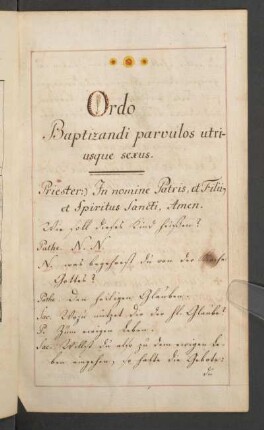 Ordo
Baptizandi parvulos utri-
usque sexus.
Priester:) In nomine Patris, et Filii,
et Spiritus Sancti, Amen.
Wie soll dieses Kind heißen?
Pathe. N. N.
N. was begehrest du von der Kirche
Gottes?
Pathe. den heiligen Glauben.
Sac. Wozu nützet dir der hl. Glaube?
P. Zum ewigen Leben.
Sac. Willst du also zu dem ewigen Le-
ben eingehen, so halte die Gebote:
du